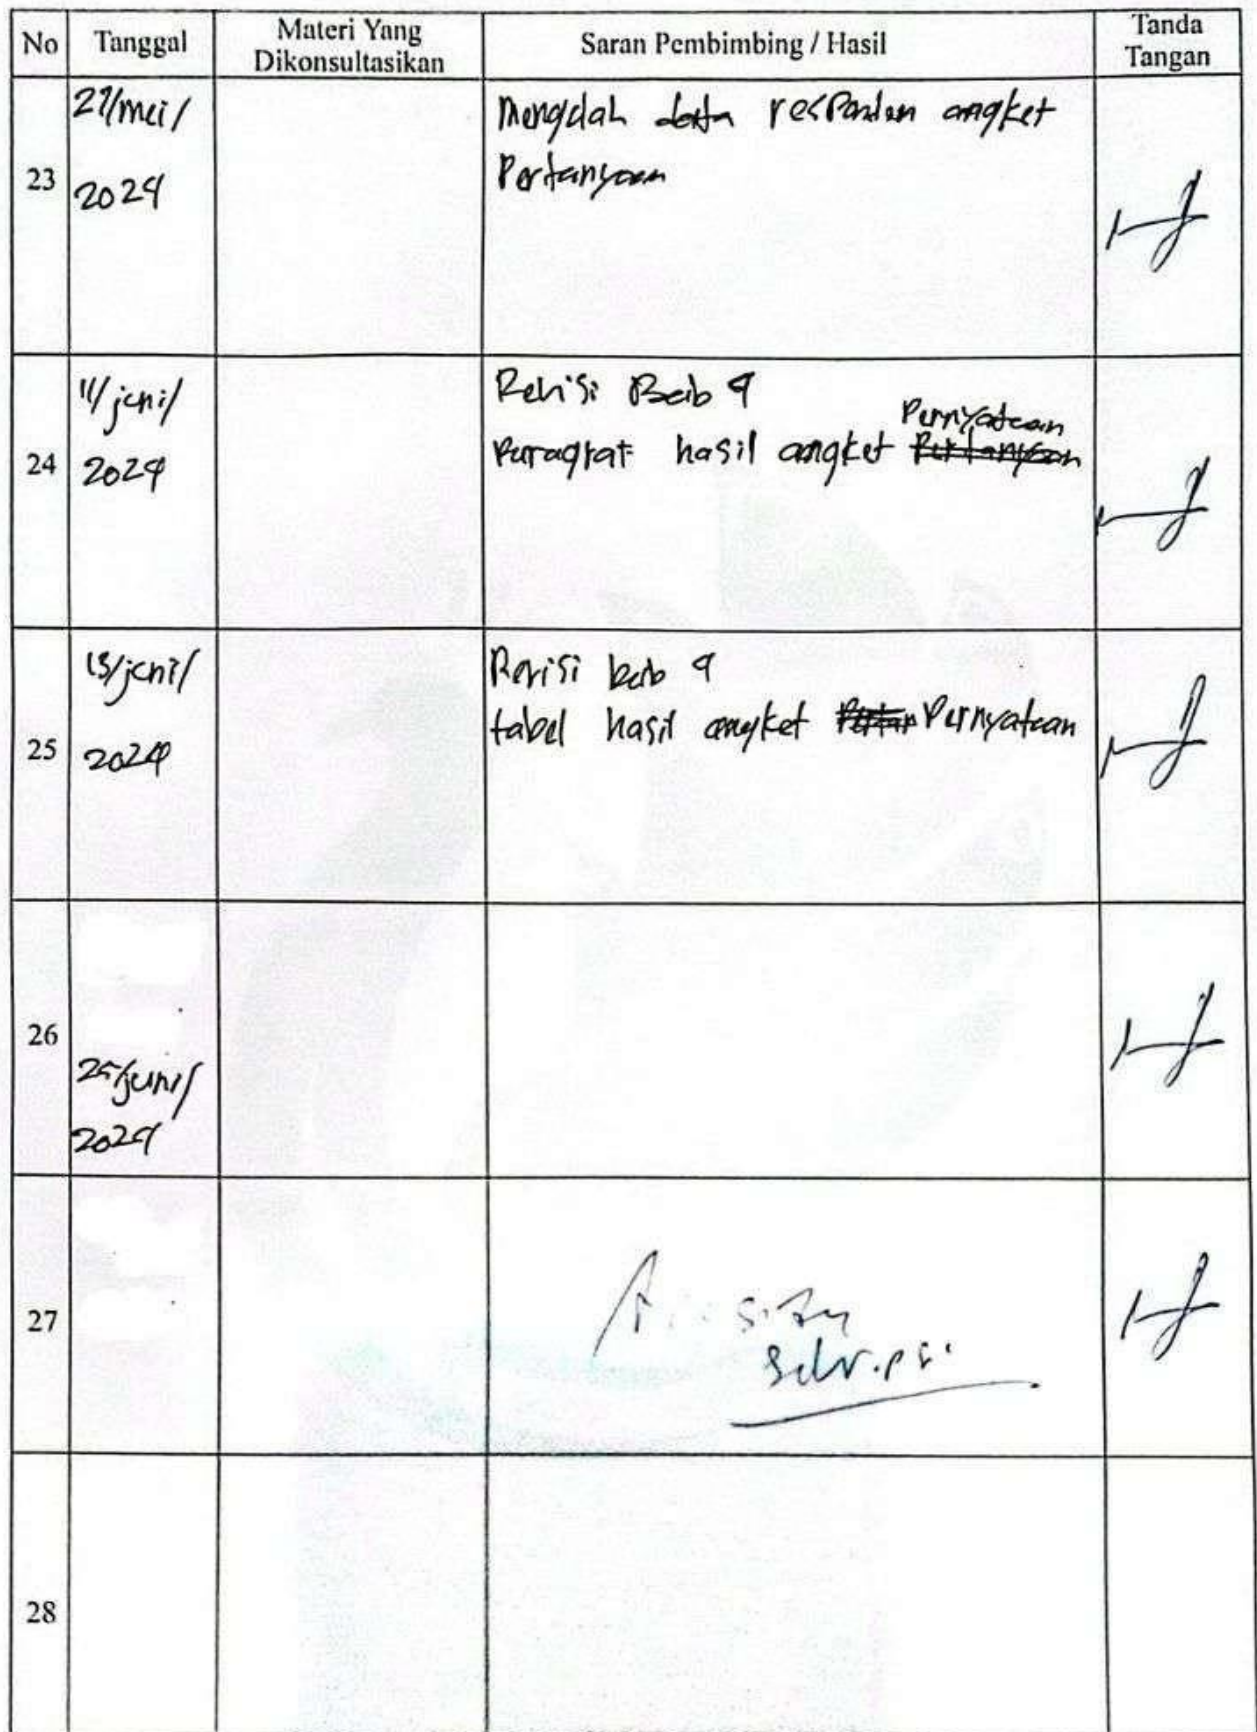 No Tanggal Materi Yang Dikonsultasikan Saran Pembimbing / Hasil Tanda Tangan
23
27/mei/
2024
Mengolah data responden angket
Pertanyaan
24
11/juni/
2024
Revisi Bab 4
Pernyataan
Paragraf hasil angket Pertanyaan
25
13/juni/
2024
Revisi bab 4
tabel hasil angket Pertan Pernyataan
26
25/juni/
2024
27
skripsi
28